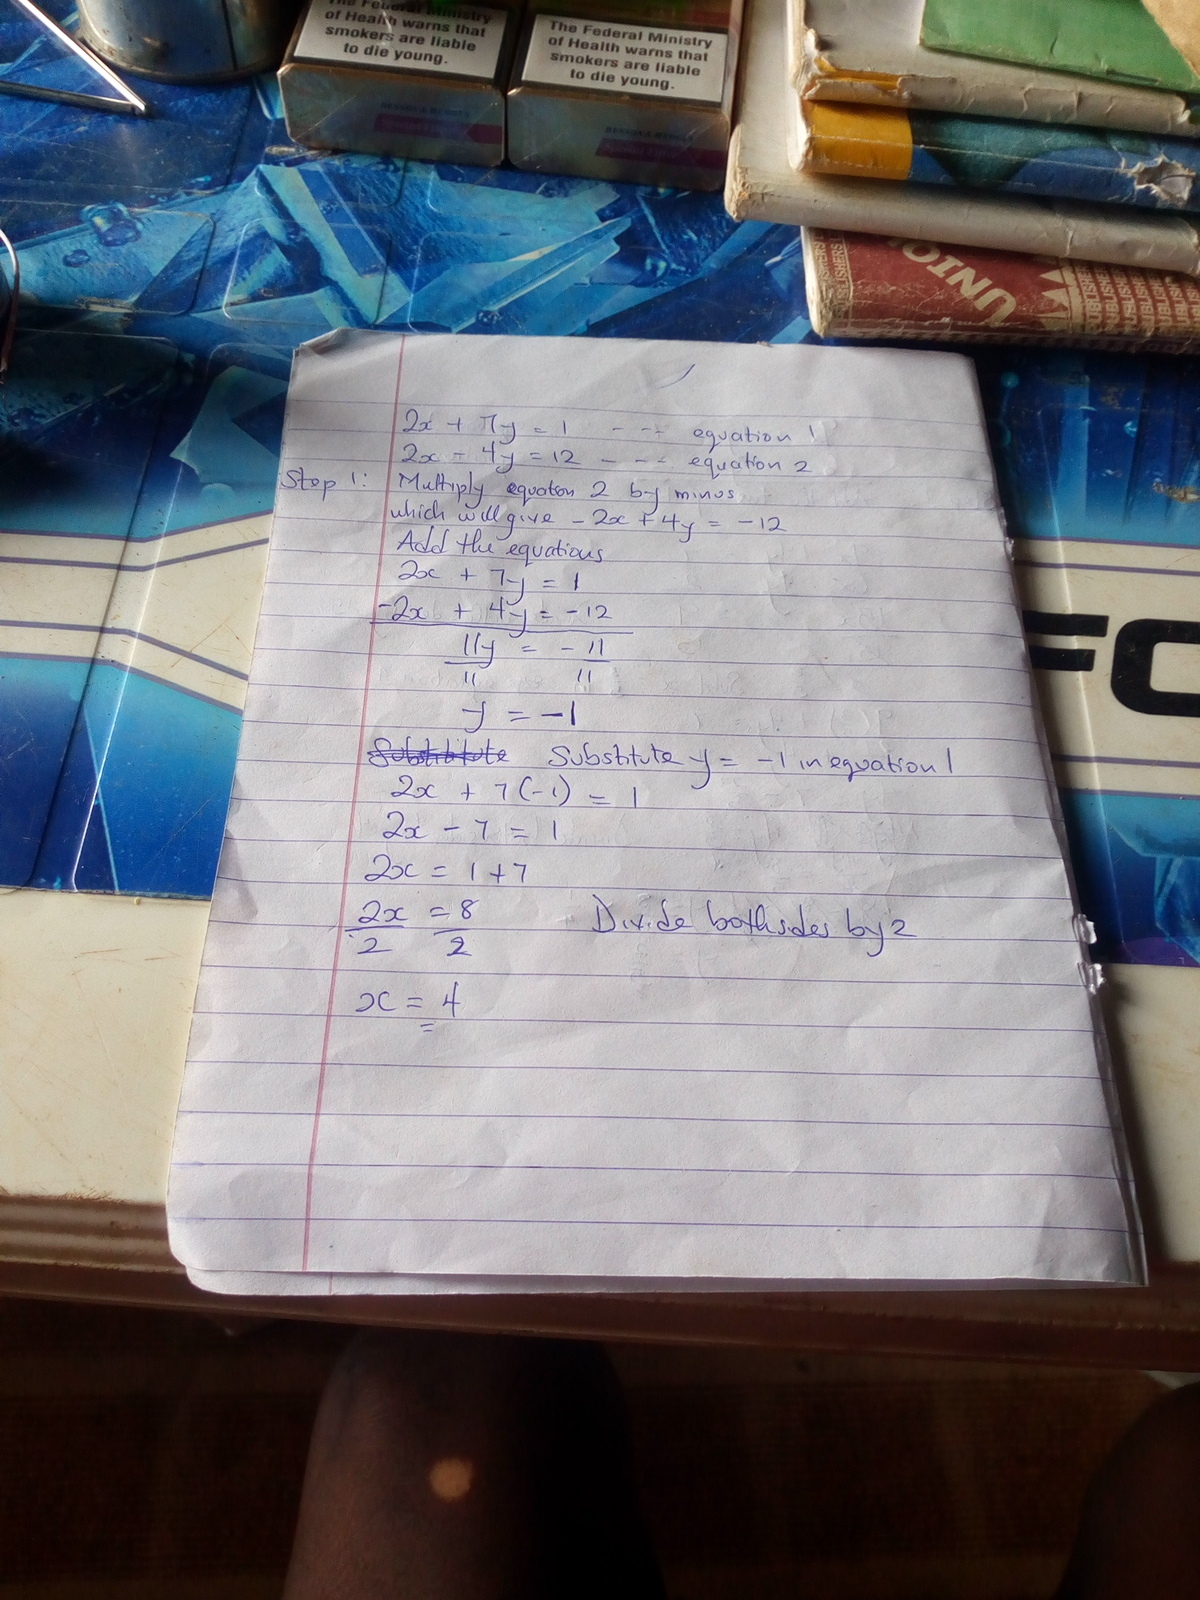 The Federal Ministry
of Health warns that
smokers are liable
to die young.
The Federal Ministry
of Health warns that
smokers are liable
to die young.
BENSON & HEDGES
BENSON & HEDGES
UNIO
PUBLISHERS
FO
2x + 7y = 1 - -- equation 1
2x - 4y = 12 - - -- equation 2
Step 1: Multiply equaton 2 by minus
which will give - 2x + 4y = -12
Add the equations
2x + 7y = 1
-2x + 4y = -12
11y = - 11
11 11
y = -1
Substitute Substitute y = -1 in equation 1
2x + 7(-1) = 1
2x - 7 = 1
2x = 1 + 7
2x = 8 Divide both sides by 2
2 2
x = 4